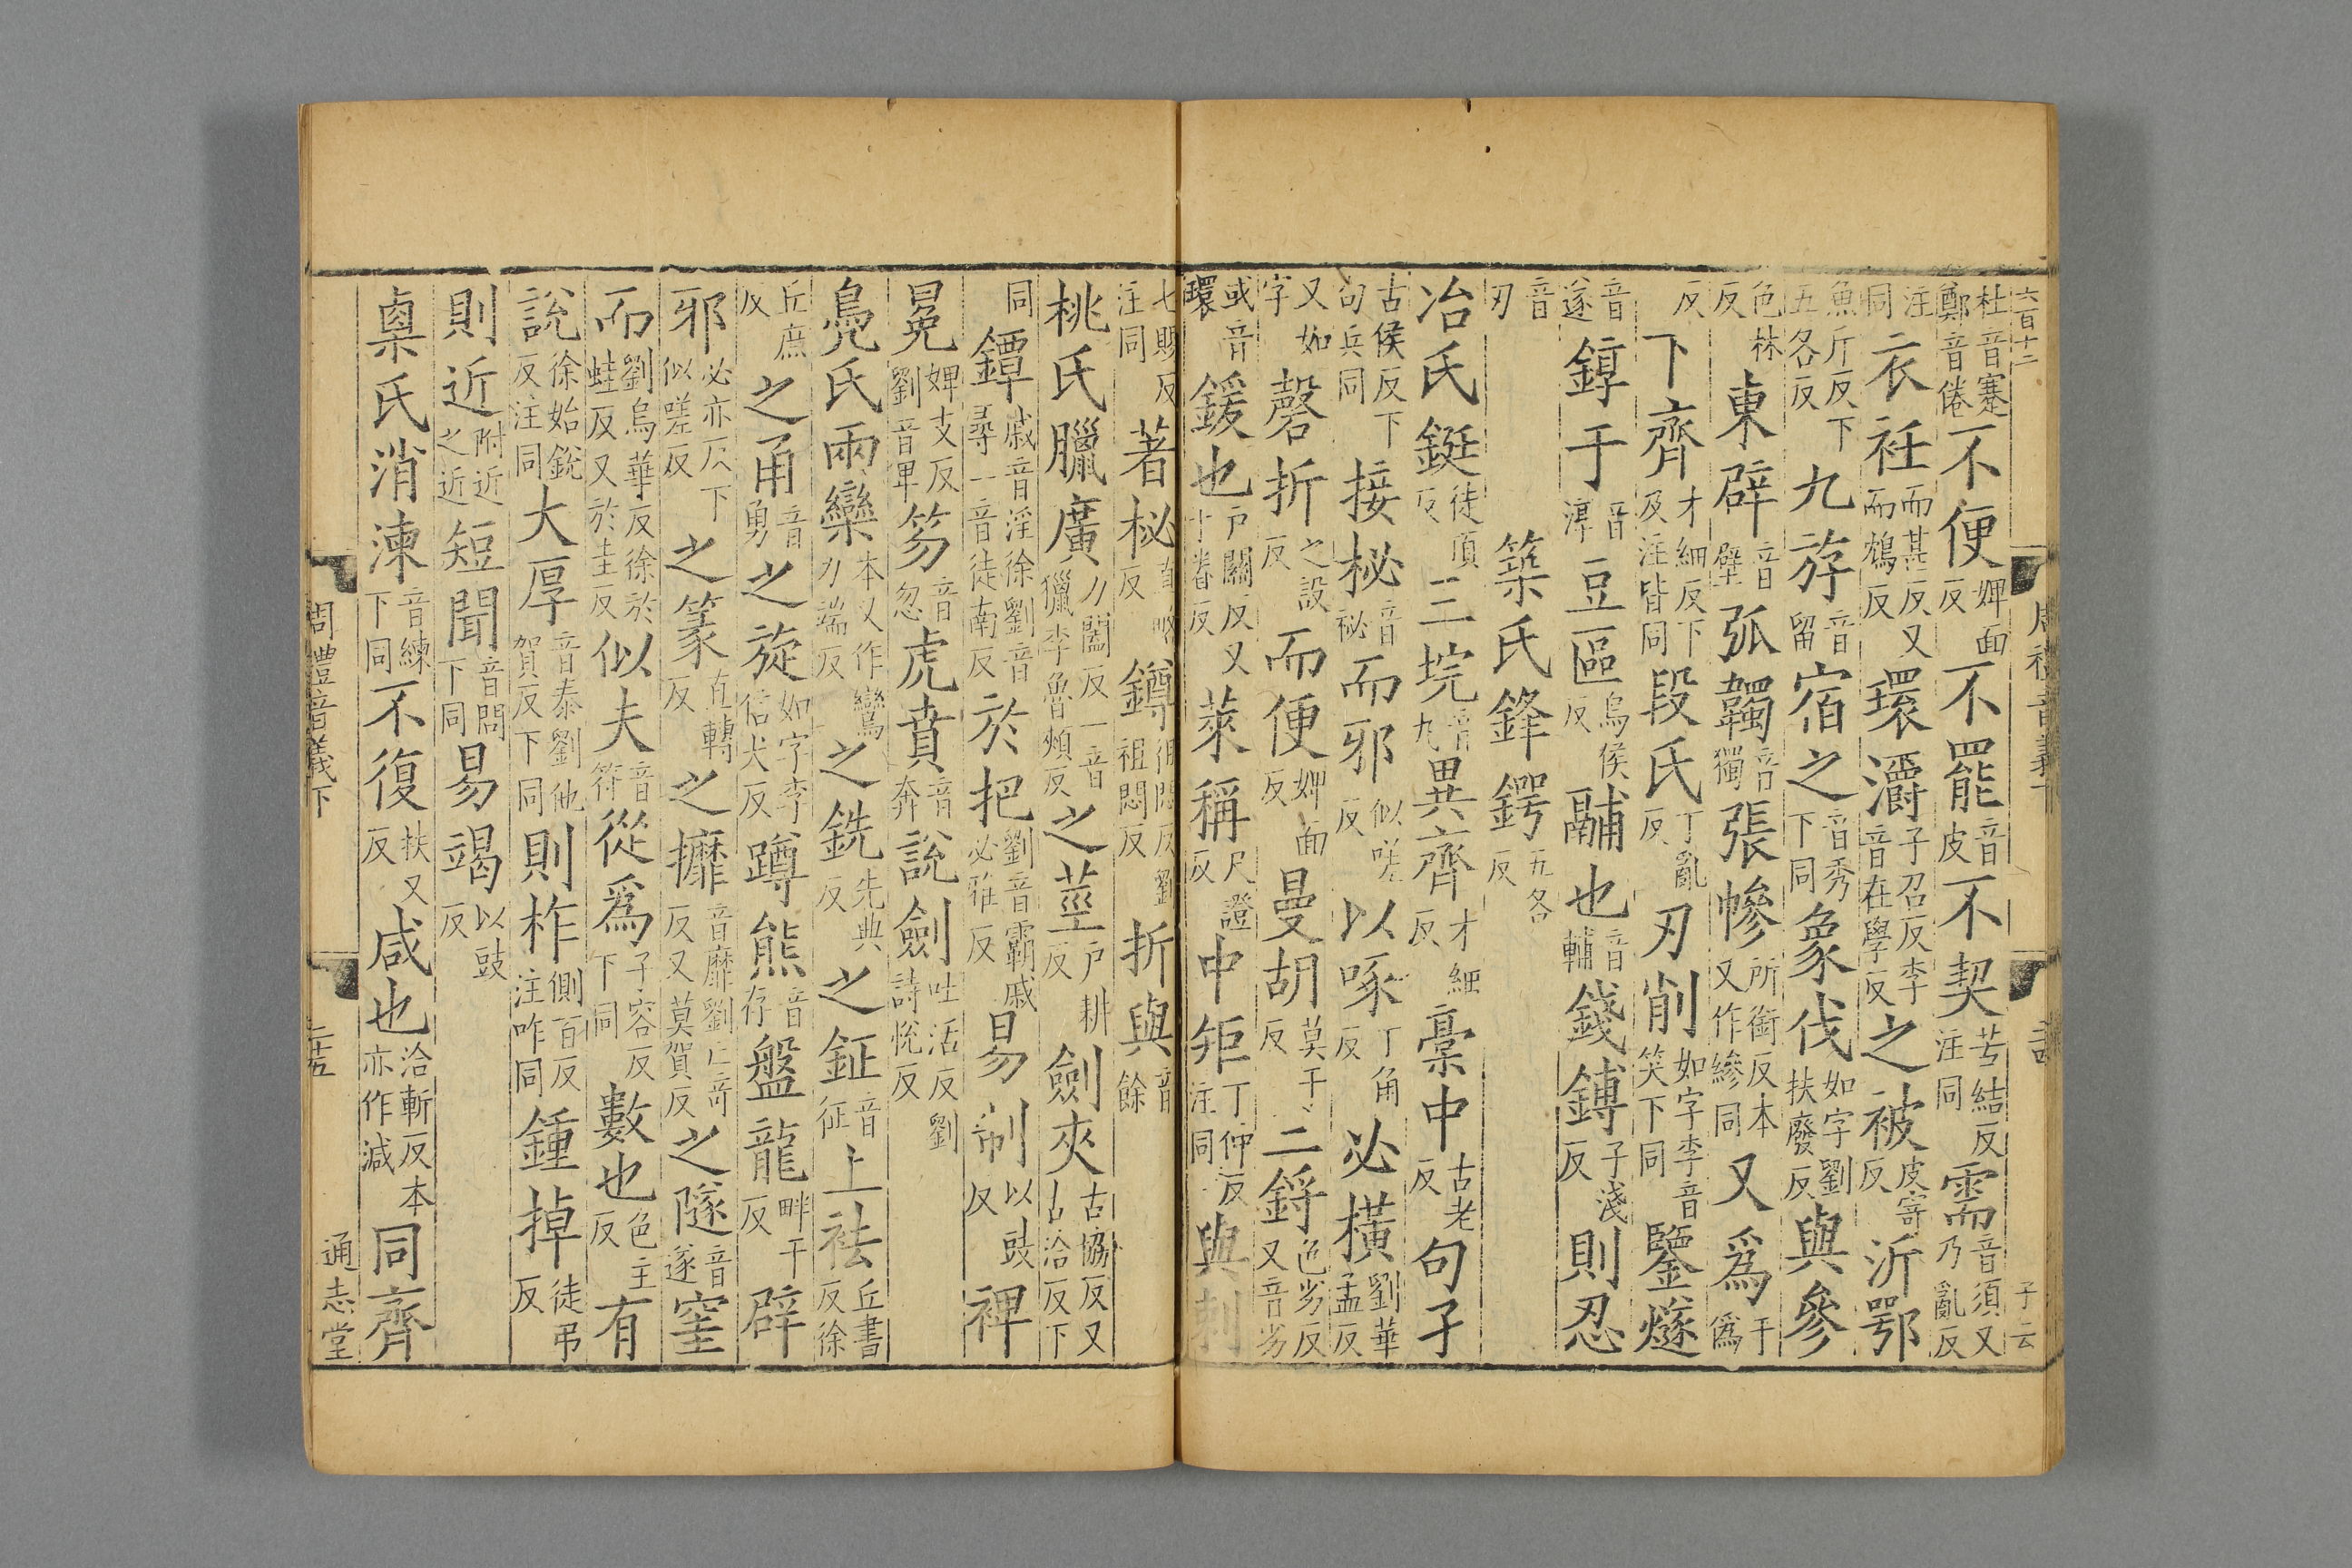 六百十二
杜音蹇鄭音倦不便婢面反不罷音皮不契苦結反注同需音須又乃亂反
注同衣衽而甚反又而鴆反環灂子召反李音在學反之被皮寄反沂鄂
魚斤反下五各反九斿音留宿之音秀下同象伐如字劉扶廢反與參
色林反東辟音壁弧韣音獨張幓所銜反本又作縿同又爲于僞
反下齊才細反下及注皆同段氏丁亂反刃削如字李音笑下同鑒燧
音遂錞于音淳豆區烏侯反鬴也音輔錢鎛子淺反則忍
音刃築氏鋒鍔五各反
冶氏鋌徒頂反三垸音九異齊才細反稾中古老反句孑
古侯反下句兵同接柲音祕而邪似嗟反以啄丁角反必橫劉華孟反
又如字磬折之設反而便婢面反曼胡莫干反二鋝色劣反又音劣
或音環鍰也戶關反又十眷反萊稱尺證反中矩丁仲反注同與刺
子云
七賜反注同著柲直略反鐏徂悶反劉祖悶反折與音餘
桃氏臘廣力闔反一音獵李魯頰反之莖戶耕反劍夾古協反又古洽反下
同鐔戚音淫徐劉音尋一音徒南反於把劉音霸戚必雅反易制以豉反裨
冕婢支反劉音卑笏音忽虎賁音奔說劍吐活反劉詩悅反
鳧氏兩欒本又作鸞力端反之銑先典反之鉦音征上袪丘書反徐
丘庶反之甬音勇之旋如字李信犬反蹲熊音存盤龍畔干反辟
邪必亦反下似嗟反之篆直轉反之攠音靡劉亡奇反又莫賀反之隧音遂窐
而劉烏華反徐於蛙反又於圭反似夫音符從爲子容反下同數也色主反有
說徐始銳反注同大厚音泰劉他賀反下同則柞側百反注咋同鍾掉徒弔反
則近附近之近短聞音問下同易竭以豉反
㮚氏消湅音練下同不復扶又反咸也洽斬反本亦作減同齊
周禮音義下
二十五
通志堂